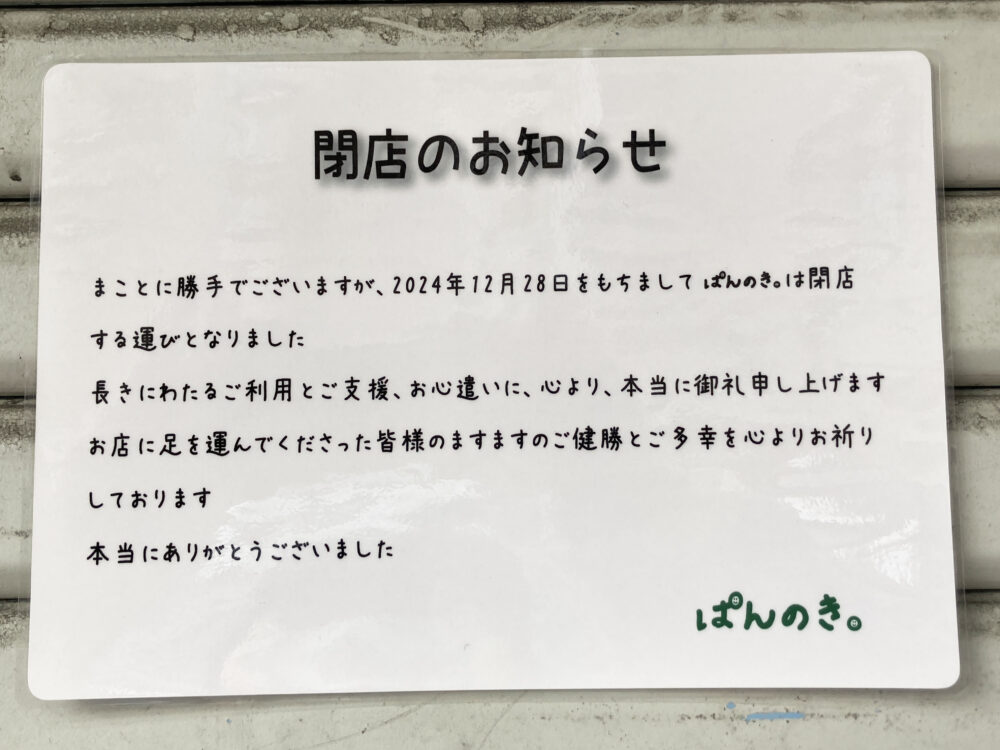 閉店のお知らせ
まことに勝手でございますが、2024年12月28日をもちまして ぱんのき。は閉店
する運びとなりました
長きにわたるご利用とご支援、お心遣いに、心より、本当に御礼申し上げます
お店に足を運んでくださった皆様のますますのご健勝とご多幸を心よりお祈り
しております
本当にありがとうございました
ぱんのき。